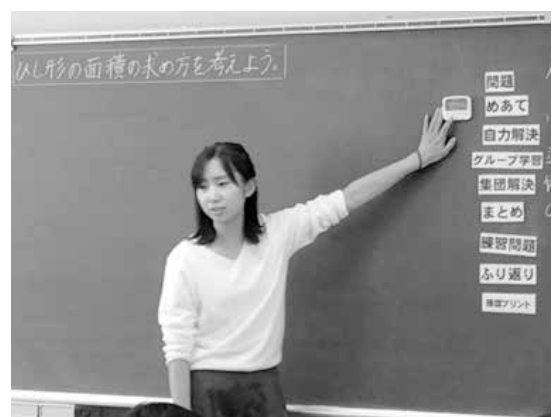 ひし形の面積の求め方を考えよう。
問題
めあて
自力解決
グループ学習
集団解決
まとめ
練習問題
ふり返り